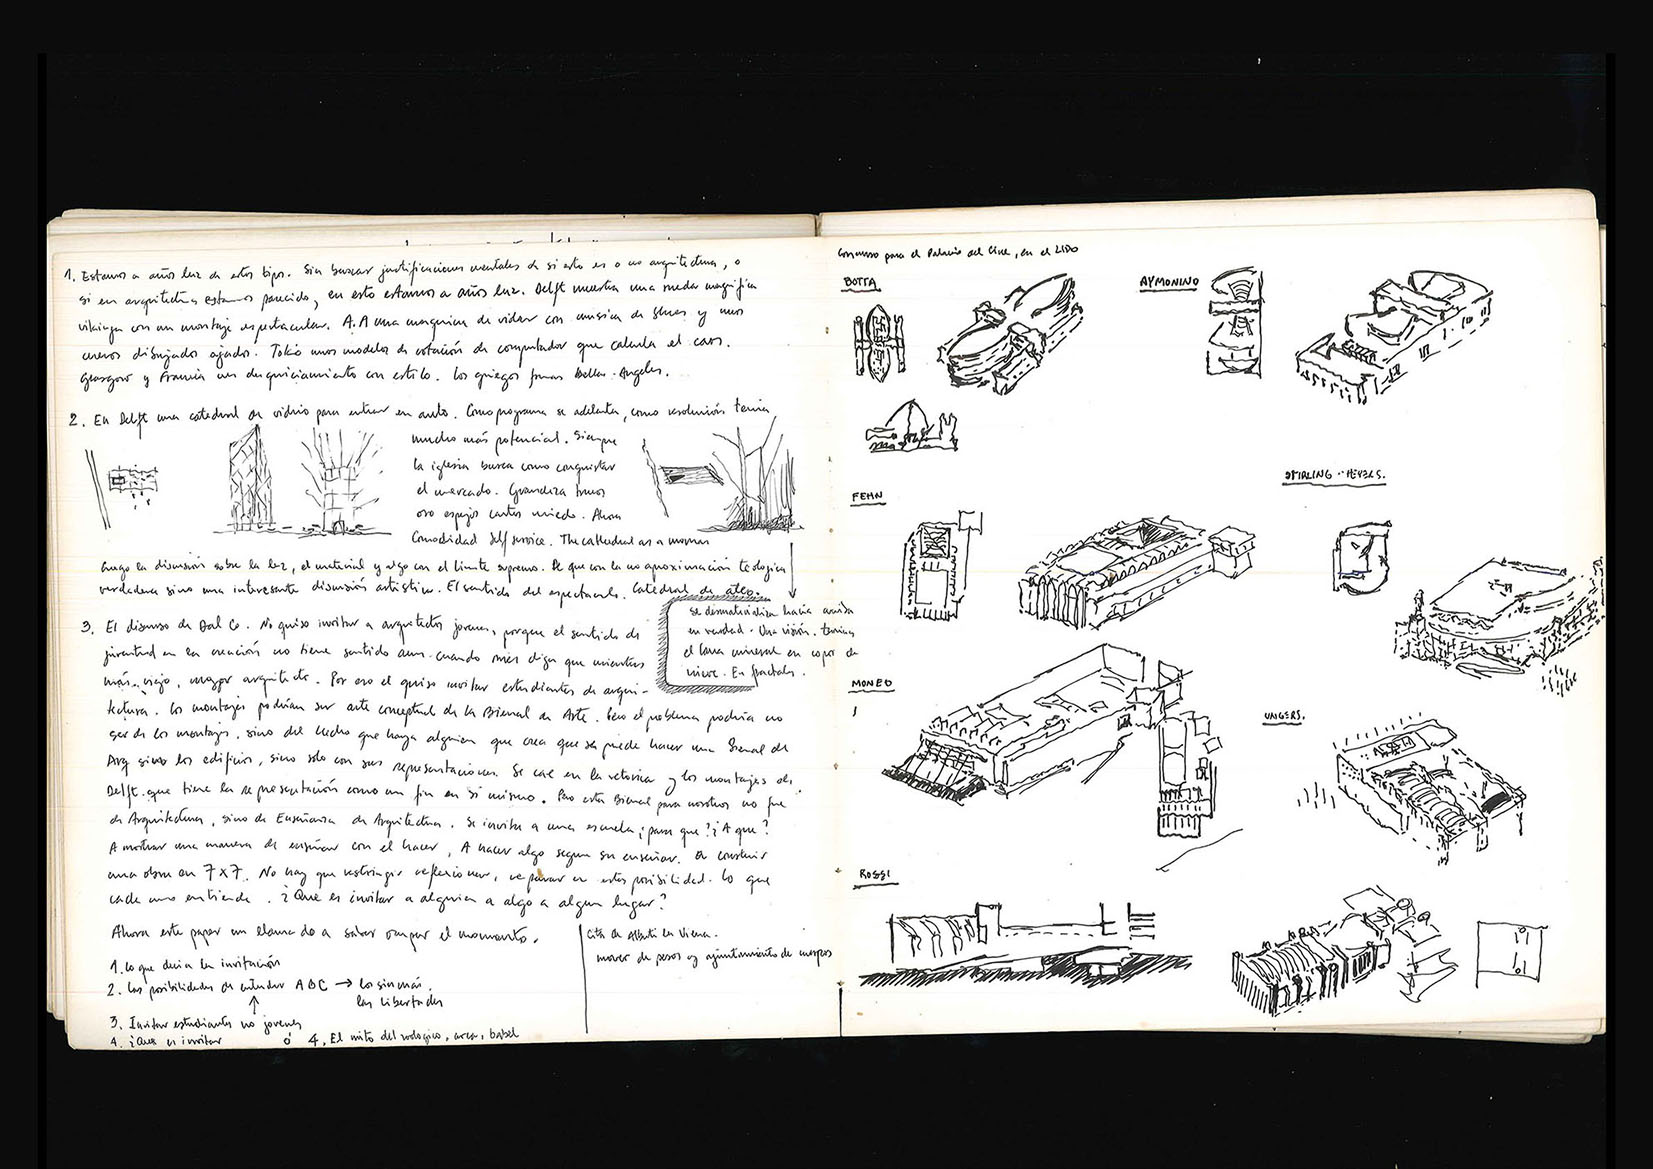 1. Estamos a años luz de estos tipos. Sin buscar justificaciones mentales de si esto es o no arquitectura, o
si en arquitectura estamos parecido, en esto estamos a años luz. Delft muestra una rueda magnífica
vikinga con un montaje espectacular. A.A una maquina de vidar con musica de Shoes y unos
cueros dibujados ajados. Tokio unos modelos de rotación de computador que calcula el caos.
Glasgow y Francia un desquiciamiento con estilo. Los griegos puras Bellas-Angeles.
2. En Delft una catedral de vidrio para entrar en auto. Como programa se adelanta, como resolución tenía
mucho más potencial. Siempre
la iglesia busca como conquistar
el mercado. Grandeza muros
oro espejos cantos miedo. Ahora
Comodidad self service. The cathedral as a
Luego la discusión sobre la luz, el material y algo con el límite supremo. De que con la no aproximación teologica
verdadera sino una interesante discusión artística. El sentido del espectaculo. Catedral de
se desmaterializa hacia arriba
en verdad. Una visión. termina
el mineral en copos de
nieve. En fractales.
3. El discurso de Dal Co. No quiso invitar a arquitectos jovenes, porque el sentido de
juventud en la creación no tiene sentido aun cuando mies diga que mientras
más viejo, mayor arquitecto. Por eso el quiso invitar estudiantes de arqui-
tectura. Los montajes podrían ser arte conceptual de la Bienal de Arte. Pero el problema podría no
ser de los montajes, sino del hecho que haya alguien que crea que se puede hacer una Bienal de
Arq sino los edificios, sino solo con sus representaciones. Se cae en la retorica y los montajes de
Delft que tiene la representación como un fin en si mismo. Pero esta Bienal para nosotros no fue
de Arquitectura, sino de Enseñanza de Arquitectura. Se invita a una escuela ¿para que? ¿A que?
A mostrar una manera de enseñar con el hacer, A hacer algo segun su enseñar. De construir
una obra en 7x7. No hay que restringir reflexionar, reparar en esta posibilidad. Lo que
cada uno entiende. ¿Que es invitar a alguien a algo a algun lugar?
Ahora este paper un llamado a saber ocupar el momento.
1. lo que decia la invitación
2. Las posibilidades de entender ABC → los sin más.
las libertades
3. Invitar estudiantes no jovenes
4. ¿Que es invitar ó 4. El mito del zodiaco, arca, babel
Cita de Alberti en Viena.
mover de pesos y ajuntamiento de cuerpos
Concurso para el Palacio del Cine, en el LIDO
BOTTA
AYMONINO
FEHN
STIRLING
MONEO
UNGERS.
ROSSI